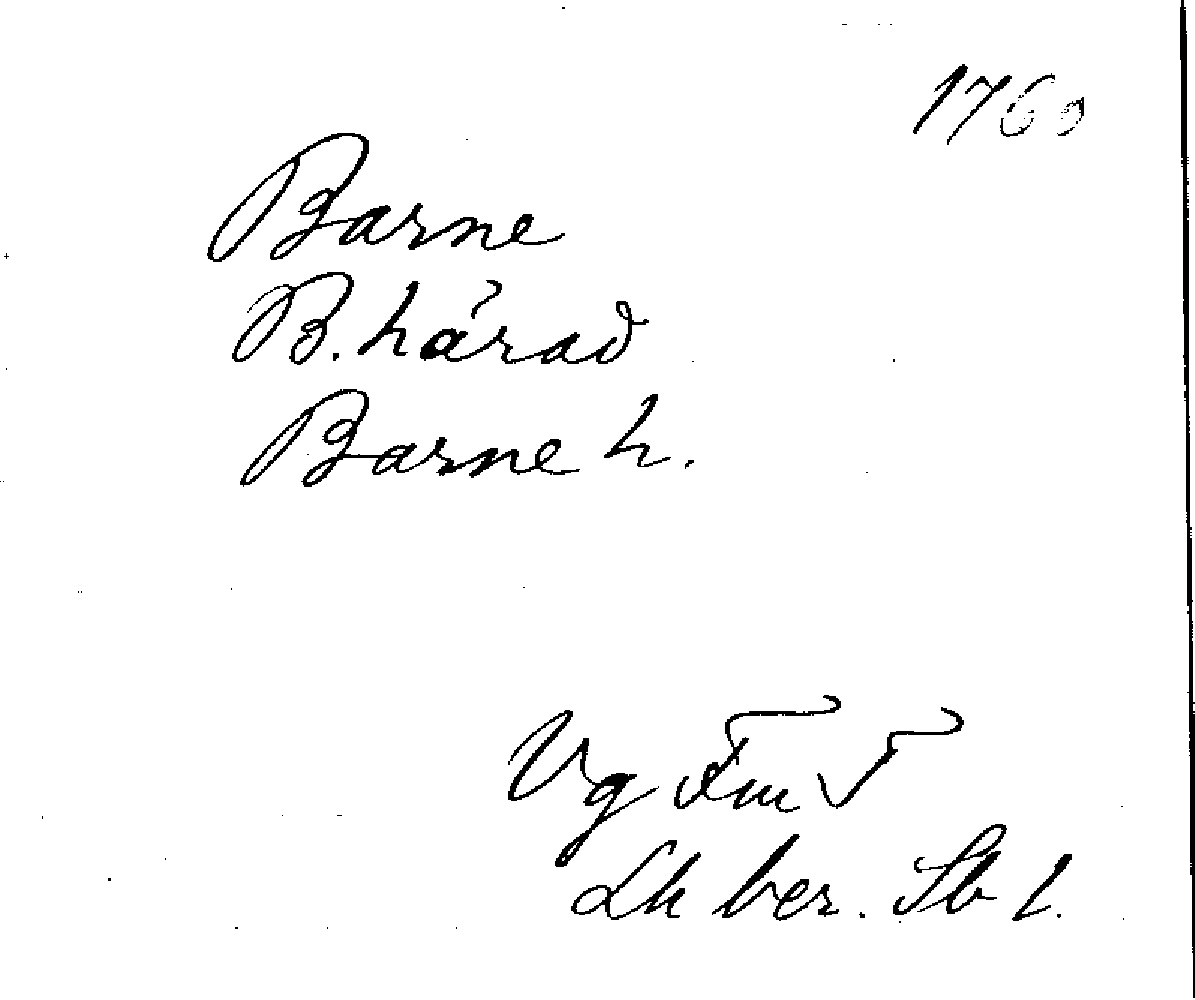 1760
Barne
B. härad
Barne h.
Vg Fm T
Lh ber. Sb 1.